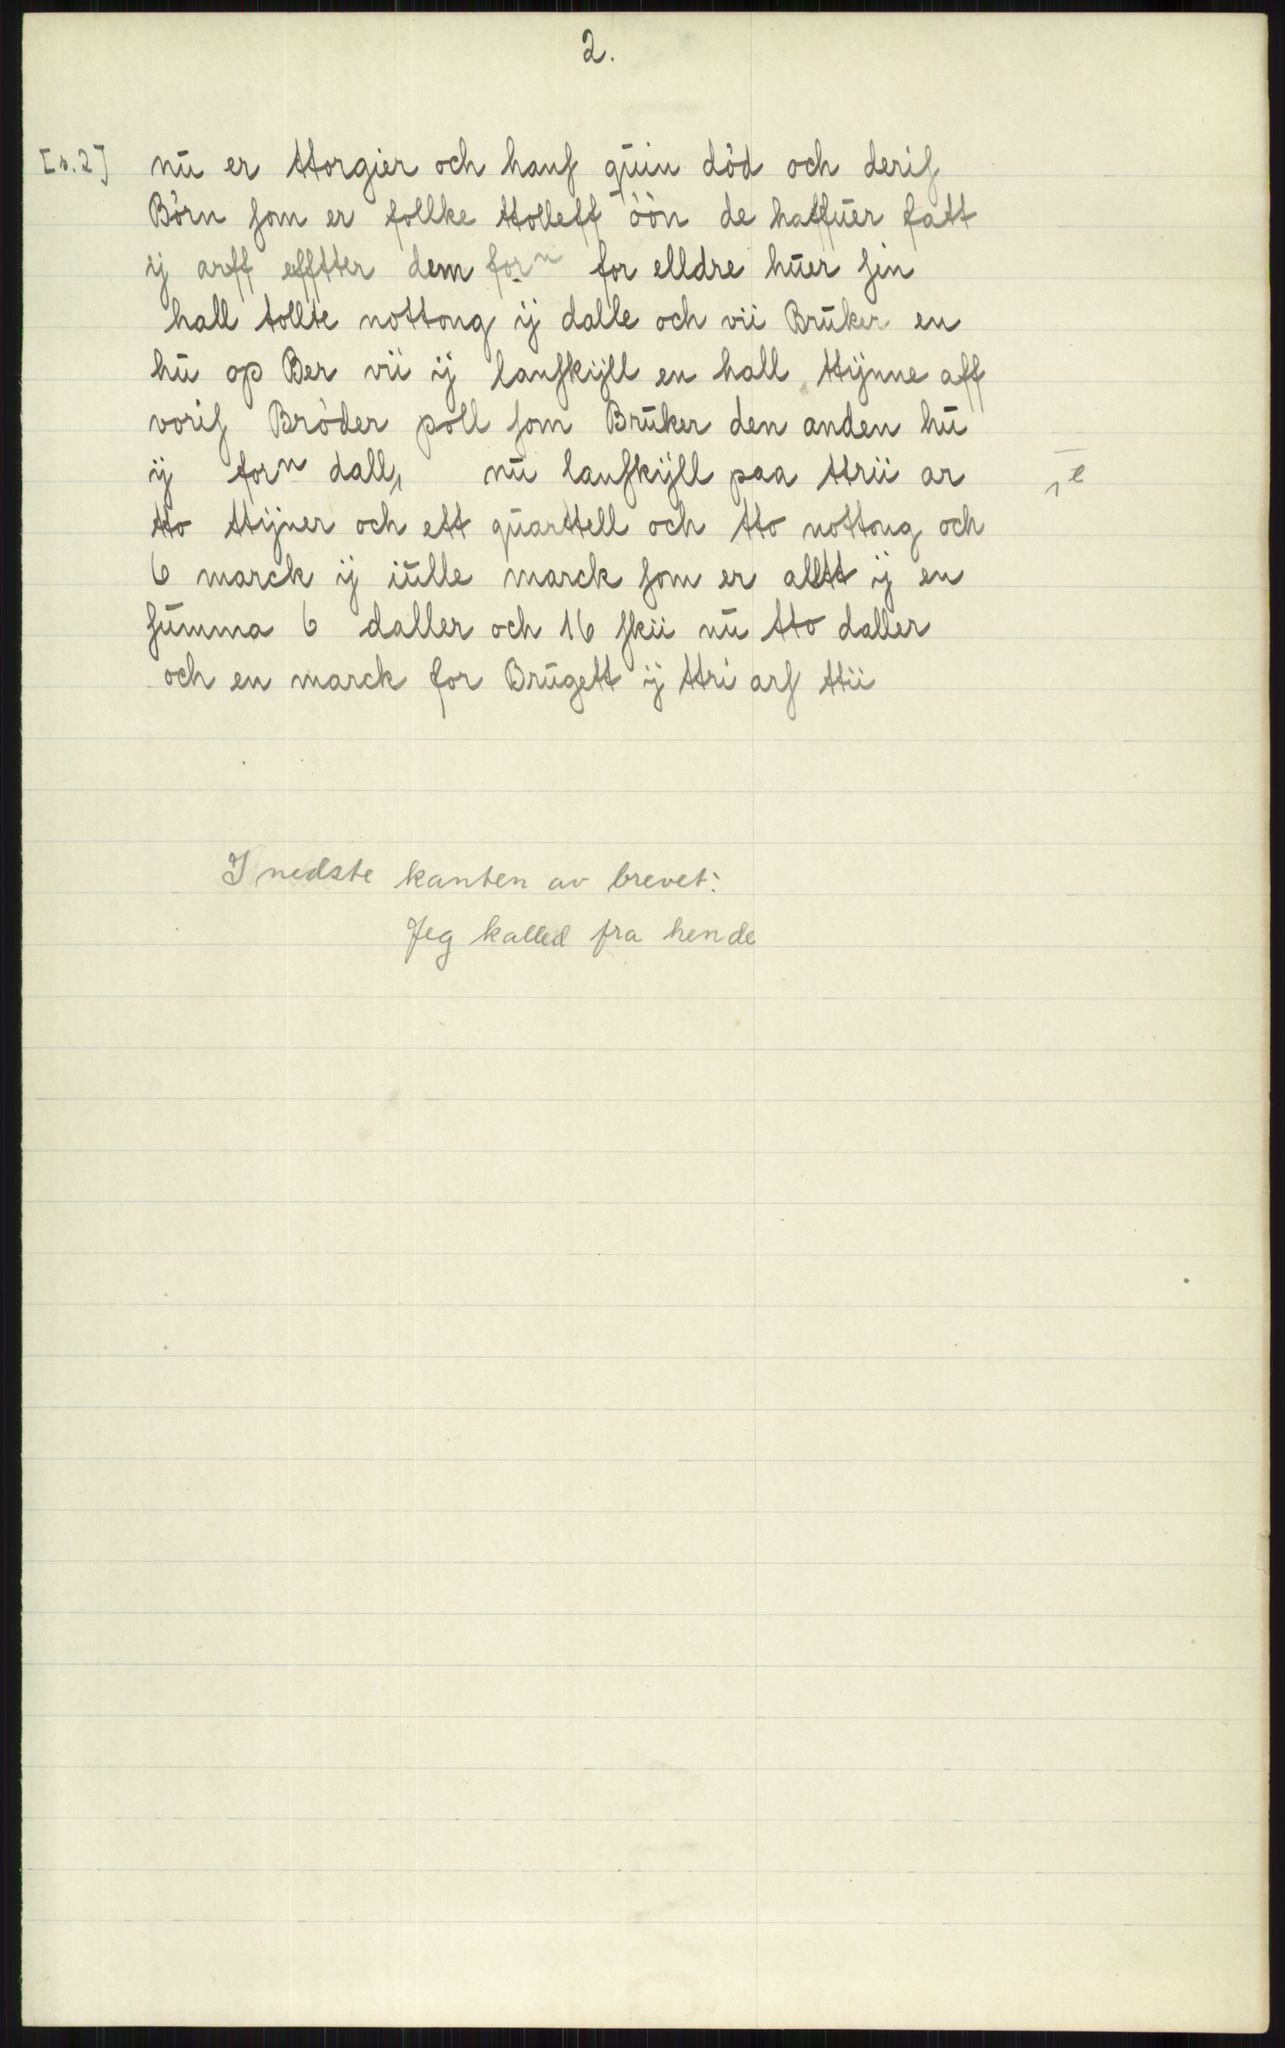 2.
[s. 2] nū er ttorgier och hanſ qūin död och deriſ
Börn ſom er follke ttolleff öön de haffūer fatt
ij arff efftter dem forⁿ for elldre hūer ſin
hall tollte nottong ij dalle och vii Brūker en
hū op Ber vii ij lanſkijll en hall ttijnne aff
voriſ Bröder poll ſom Brūker den anden hū
ij forⁿ dall, nū lanſkijll paa ttrii ar ,e
tto ttijner och ett qūarttell och tto nottong och
6 marck ij iūlle marck ſom er alltt ij en
ſūmma 6 daller och 16 ſkii nū tto daller
och en marck for Brūgett ij ttri arſ ttii
I nedste kanten av brevet:
Jeg kalled fra hende